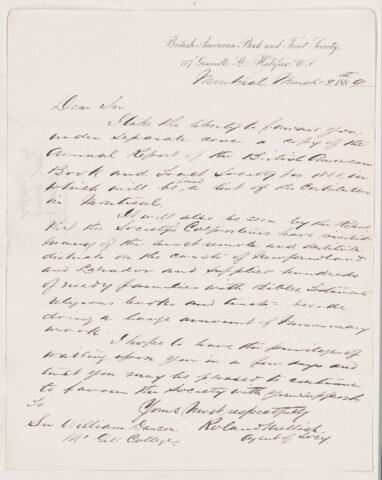 British American Book and Tract Society,
117 Granville St. Halifax, N.S.
Montreal March 9th 188
Dear Sir
I take the liberty to forward you
under separate cover, a copy of the
Annual Report of the British American
Book and Tract Society for in
which will be found a list of the Contributors
in Montreal.
It will also be seen by the Report
that the Society's Colporteurs have visited
many of the most remote and destitute
districts on the coasts of Newfoundland
and Labrador and supplied hundreds
of needy families with Bibles, Testaments
religious books and tracts beside
doing a large amount of Missionary
work.
I hope to have the privilege of
waiting upon you in a few days and
trust you may be pleased to continue
to favour the Society with your support
Yours most respectfully
To
Sir William Dawson Roland
McGill College. Agent of Socy.